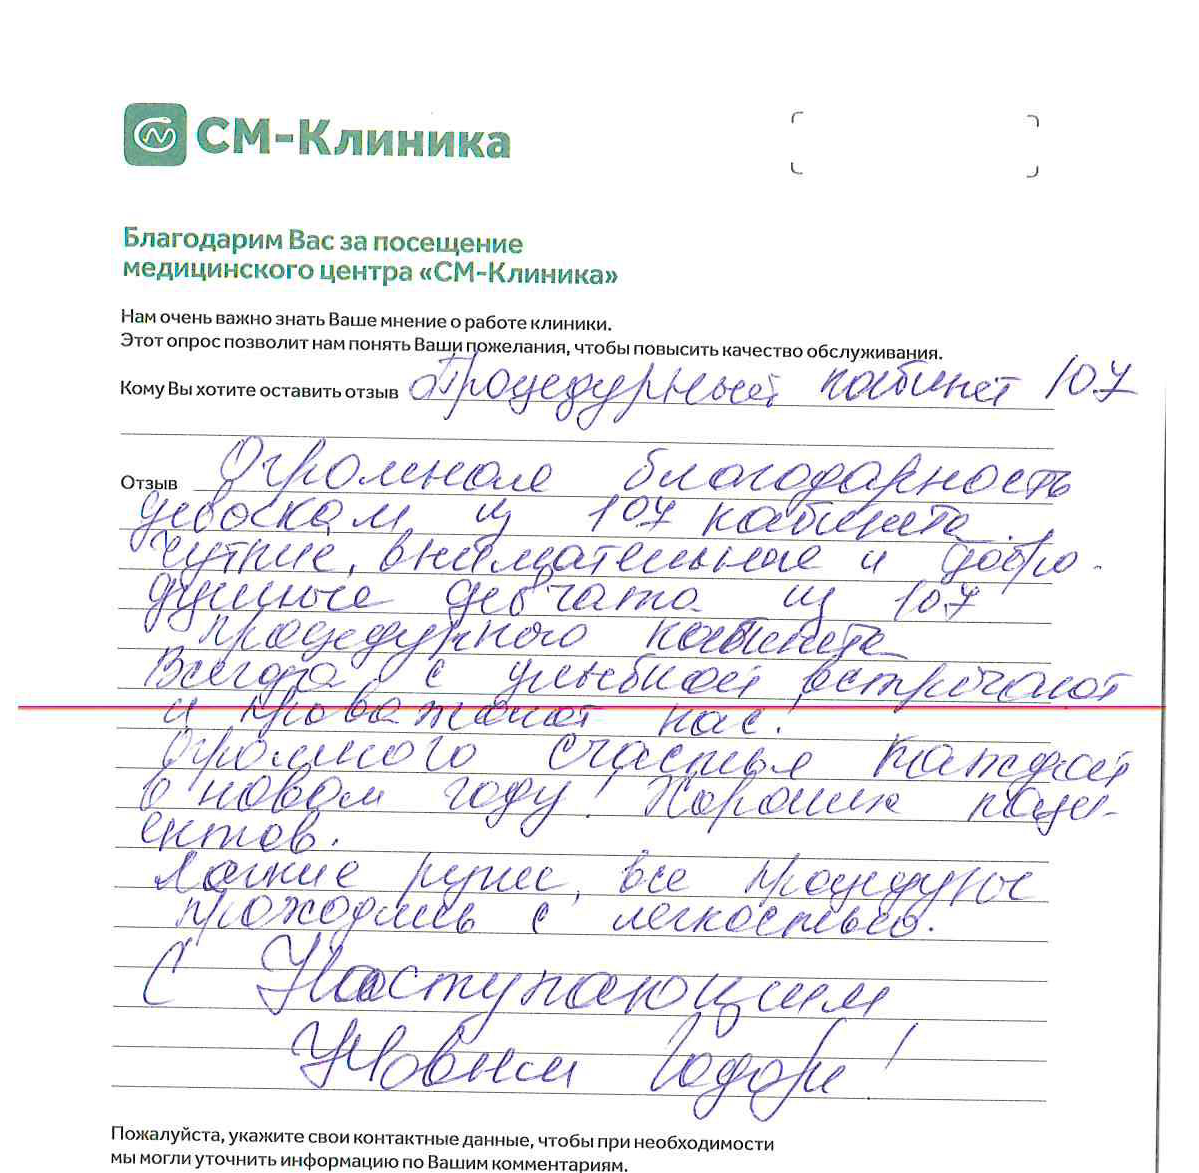 СМ-Клиника
Благодарим Вас за посещение
медицинского центра «СМ-Клиника»
Нам очень важно знать Ваше мнение о работе клиники.
Этот опрос позволит нам понять Ваши пожелания, чтобы повысить качество обслуживания.
Кому Вы хотите оставить отзыв Процедурный кабинет 107
Отзыв Огромная благодарность
девочкам из 107 кабинета.
Чуткие, внимательные и добро-
душные девчата из 107
процедурного кабинета
Всегда с улыбкой встречают
и провожают нас!
Огромного счастья каждой
в новом году! Хороших паци-
ентов.
Легкие руки, все процедуры
проходились с легкостью.
С Наступающим
Новым Годом!
Пожалуйста, укажите свои контактные данные, чтобы при необходимости
мы могли уточнить информацию по Вашим комментариям.